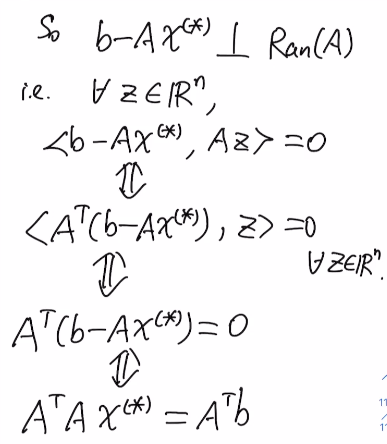 So b-Ax^(*) ⊥ Ran(A)
i.e. ∀ z ∈ ℝⁿ,
<b-Ax^(*), Az> =0
⇕
<Aᵀ(b-Ax^(*)), z> =0
∀ z∈ℝⁿ.
⇕
Aᵀ(b-Ax^(*)) = 0
⇕
AᵀA x^(*) = Aᵀb